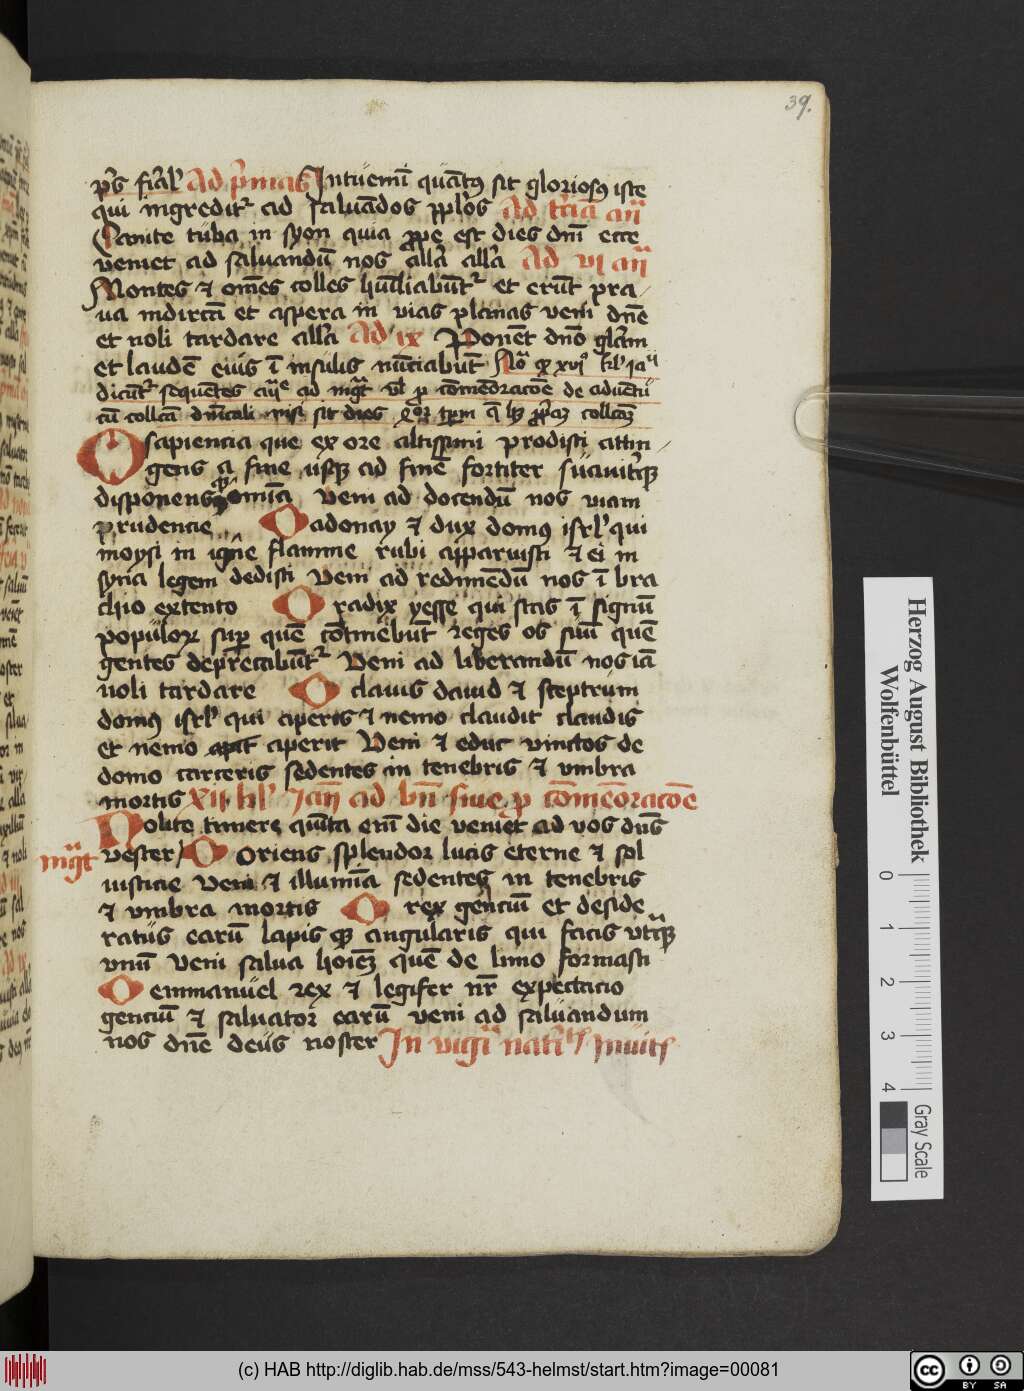 39.
p̄s fīal' Ad p̄mas Intuemī quāt9 sit glorios9 iste
qui ingredit᷑ ad saluādos pplōs Ad t̄ciā añ
Canite tuba in syon quia ꝓpe est dies dnī ecce
veniet ad saluandū nos all'a all'a Ad vi añ
Montes ⁊ om̄es colles hūiliabūt᷑ et erūt pra/
ua indirc̄ta et aspera in vias planas veni dn̄e
et noli tardare all'a Ad ix Ponēt dn̄o gl'am
et laudē eius ī insulis nūciabūt Nōa ꝙ xvi⁰ kl' ia
dicūt᷑ sequētes añe ad mg̅t vl' ꝓ cōmēoracōe de aduētu
cū collcā dn̄icali nisi sit dies
O sapiencia que ex ore altissimi prodisti attin/
gens a fine usqꝫ ad finē fortiter suauit'qꝫ
disponens omīa veni ad docendū nos viam
prudencie O adonay ⁊ dux domus isrl' qui
moysi in igne flamme rubi apparuisti ⁊ ei in
syna legem dedisti Veni ad redimēdū nos ī bra
chio extento O radix yesse qui stas ī signū
populoꝝ sup quē cōtinebūt reges os suū quē
gentes deprecabūt᷑ Veni ad liberandū nos iā
noli tardare O clauis dauid ⁊ sceptrum
dom9 isrl' qui aperis ⁊ nemo claudit claudis
et nemo apit aperit Veni ⁊ educ vinctos de
domo carceris sedentes in tenebris ⁊ vmbra
mortis XII kl' Ian ad bn̄ siue ꝓ cōmēoracōe
Nolite timere quīta em̄ die veniet ad vos dn̄s
mg̅t vester O Oriens splendor lucis eterne ⁊ sol
iusticie Veni ⁊ illumīa sedentes in tenebris
⁊ vmbra mortis O rex genciū et deside
ratus earū lapis qꝫ angularis qui facis vtrqꝫ
vnū veni salua hoīeꝫ quē de limo formasti
O emmanuel rex ⁊ legifer nr̄ expectacio
genciū ⁊ saluator earū veni ad saluandum
nos dn̄e deus noster In vigīa natīl'
Herzog August Bibliothek
Wolfenbüttel
0 1 2 3 4
Gray Scale
(c) HAB http://diglib.hab.de/mss/543-helmst/start.htm?image=00081
cc BY SA